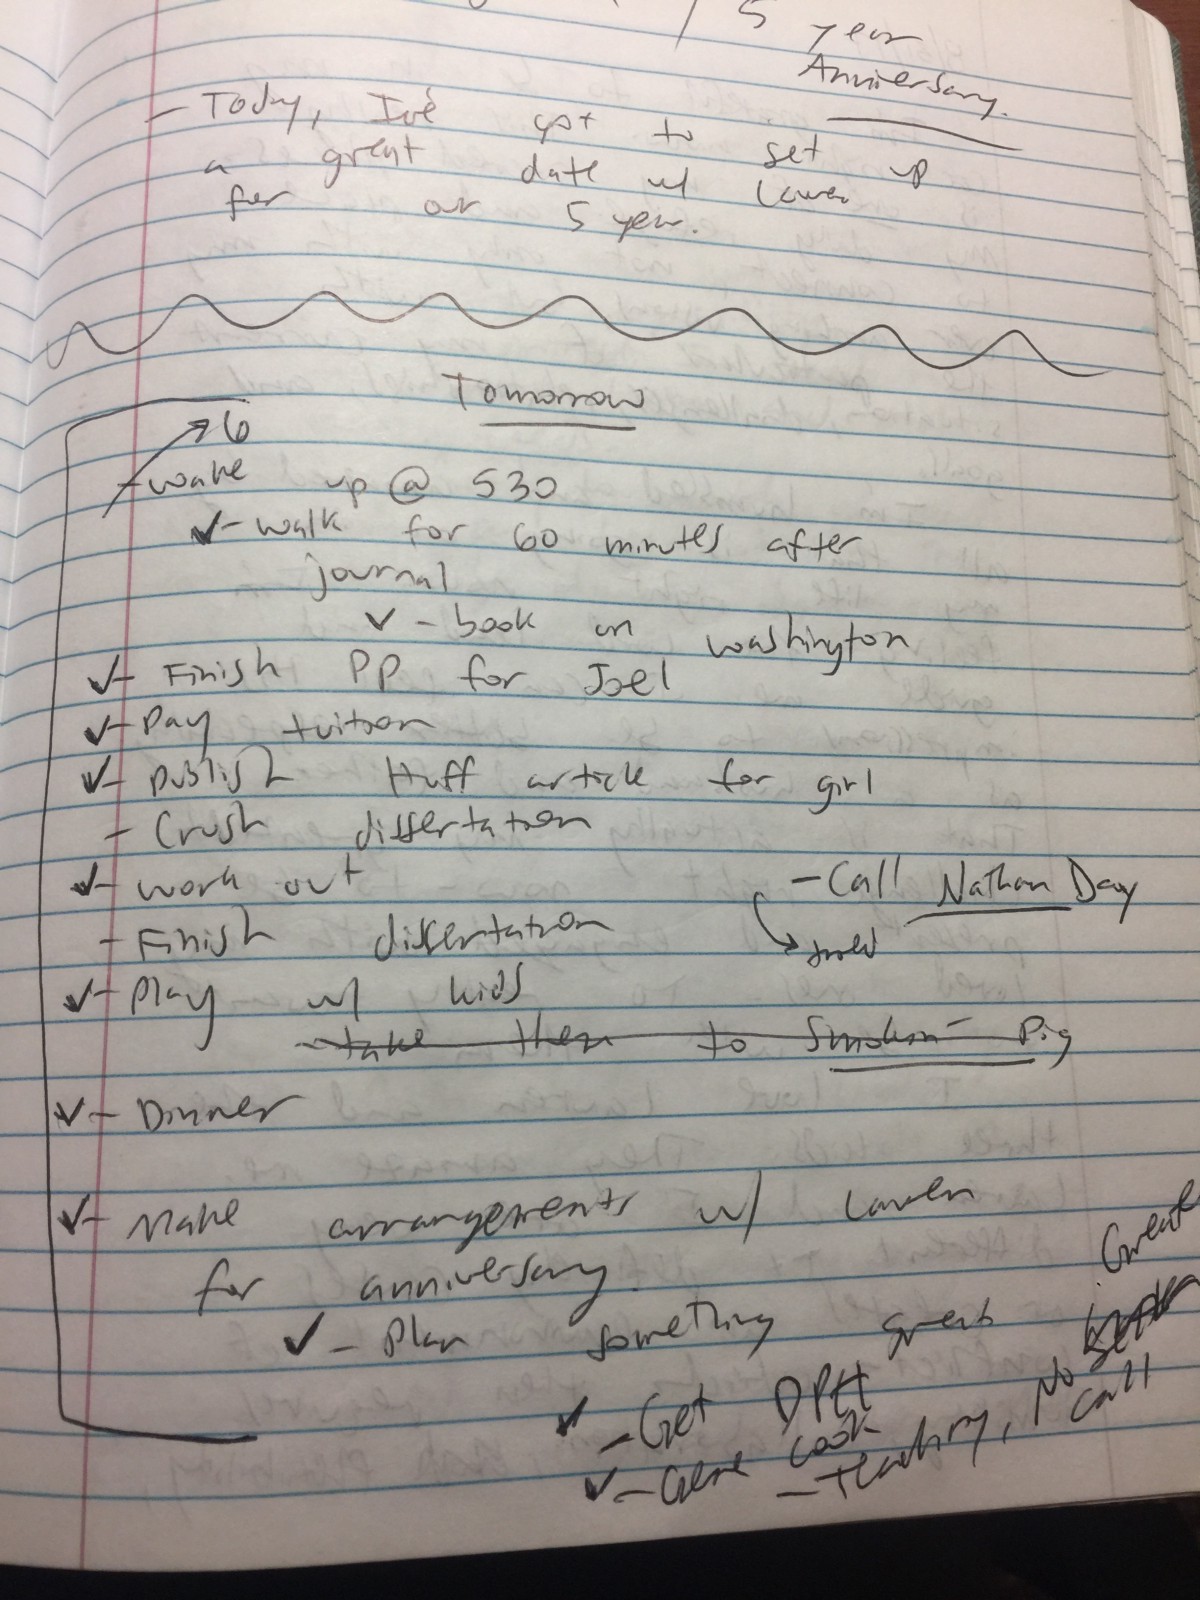 / 5 year
Anniversary.
- Today, I've got to set up
a great date w/ Lauren
for our 5 year.
Tomorrow
6
- wake up @ 530
✓ - walk for 60 minutes after
journal
✓ - book on washington
✓ - Finish PP for Joel
✓ - Pay tuition
✓ - Publish Huff article for girl
- Crush dissertation
✓ - work out
- Call Nathan Day
- Finish dissertation
✓ - Play w/ kids
- take them to Smokin Pig
✓ - Dinner
✓ - Make arrangements w/ Lauren
for anniversary.
✓ - Plan something great
✓ - Get DPH
✓ - Gene Cook
- teaching, No
call
Great